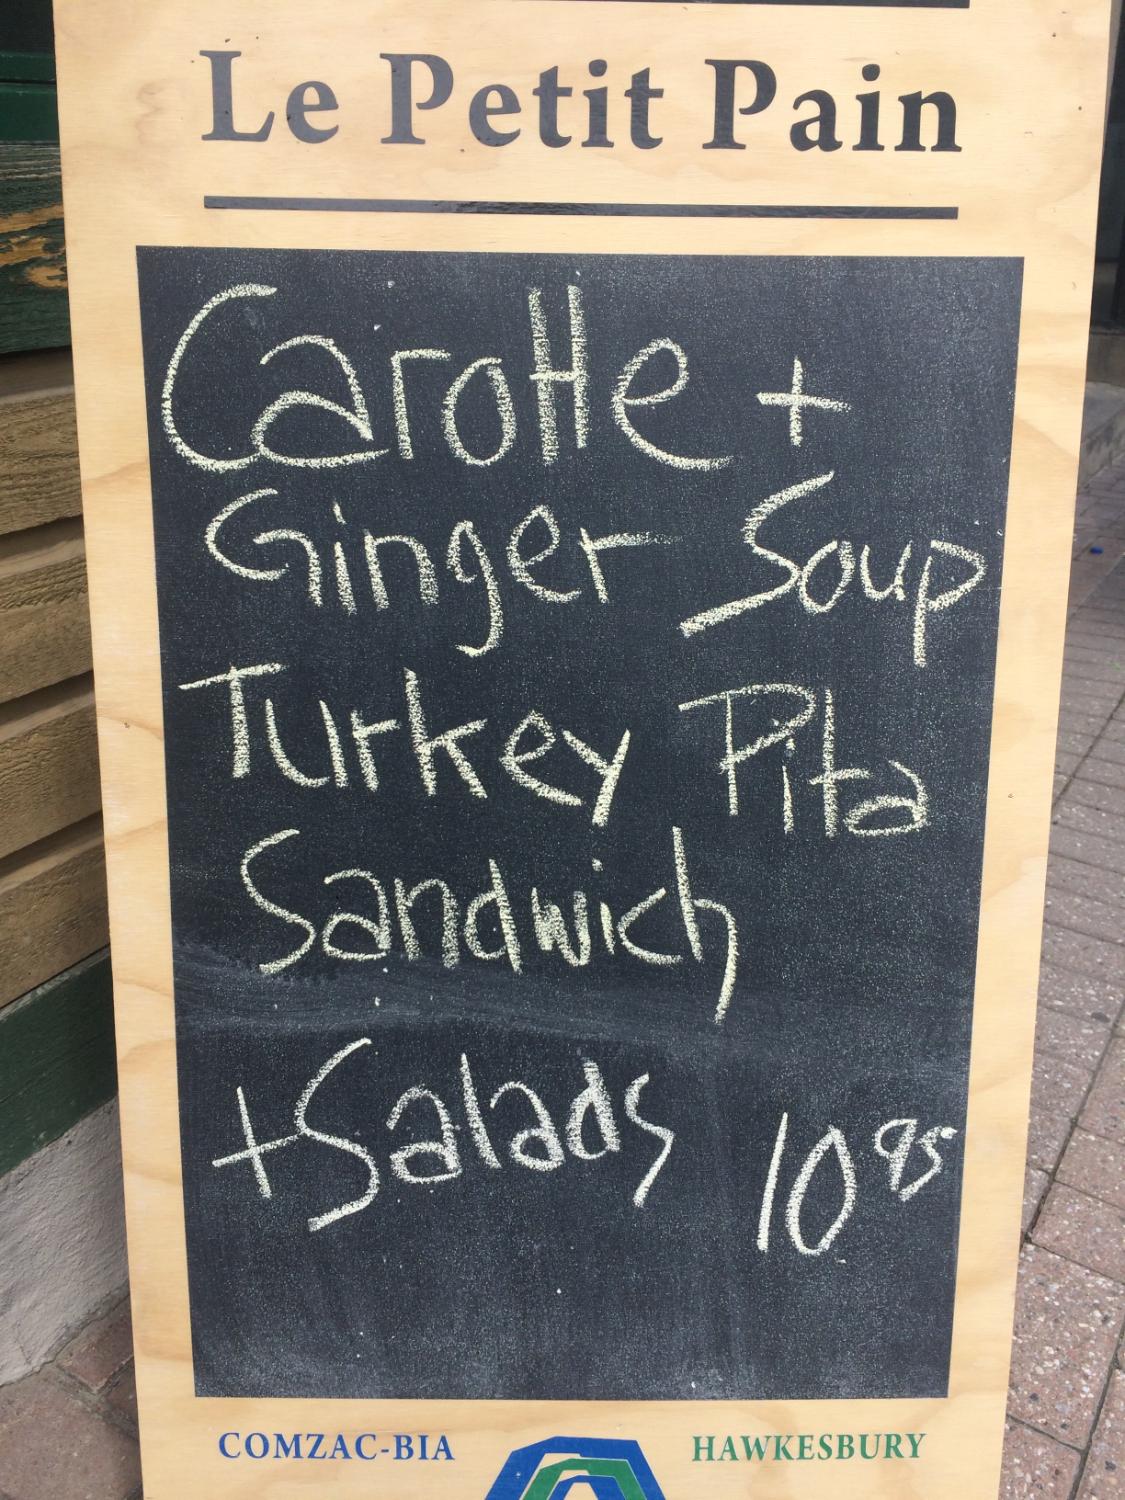 Le Petit Pain
Carotte +
Ginger Soup
Turkey Pita
Sandwich
+ Salads 10 95
COMZAC-BIA HAWKESBURY